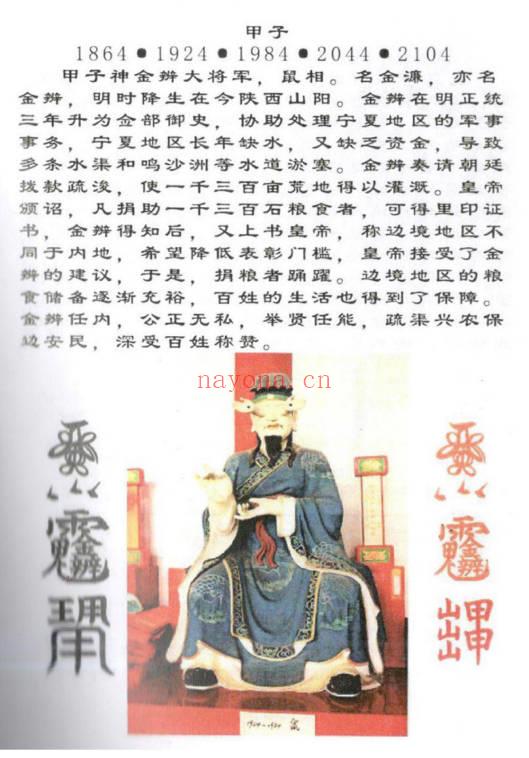 甲子
1864●1924●1984●2044●2104
甲子神金辨大将军，鼠相。名金濂，亦名
金辨，明时降生在今陕西山阳。金辨在明正统
三年升为佥部御史，协助处理宁夏地区的军事
事务，宁夏地区长年缺水，又缺乏资金，导致
多条水渠和鸣沙洲等水道淤塞。金辨奏请朝廷
拨款疏浚，使一千三百亩荒地得以灌溉。皇帝
颁诏，凡捐助一千三百石粮食者，可得里印证
书，金辨得知后，又上书皇帝，称边境地区不
同于内地，希望降低表彰门槛，皇帝接受了金
辨的建议，于是，捐粮者踊跃。边境地区的粮
食储备逐渐充裕，百姓的生活也得到了保障。
金辨任内，公正无私，举贤任能，疏渠兴农保
边安民，深受百姓称赞。
nayona.cn
鼠